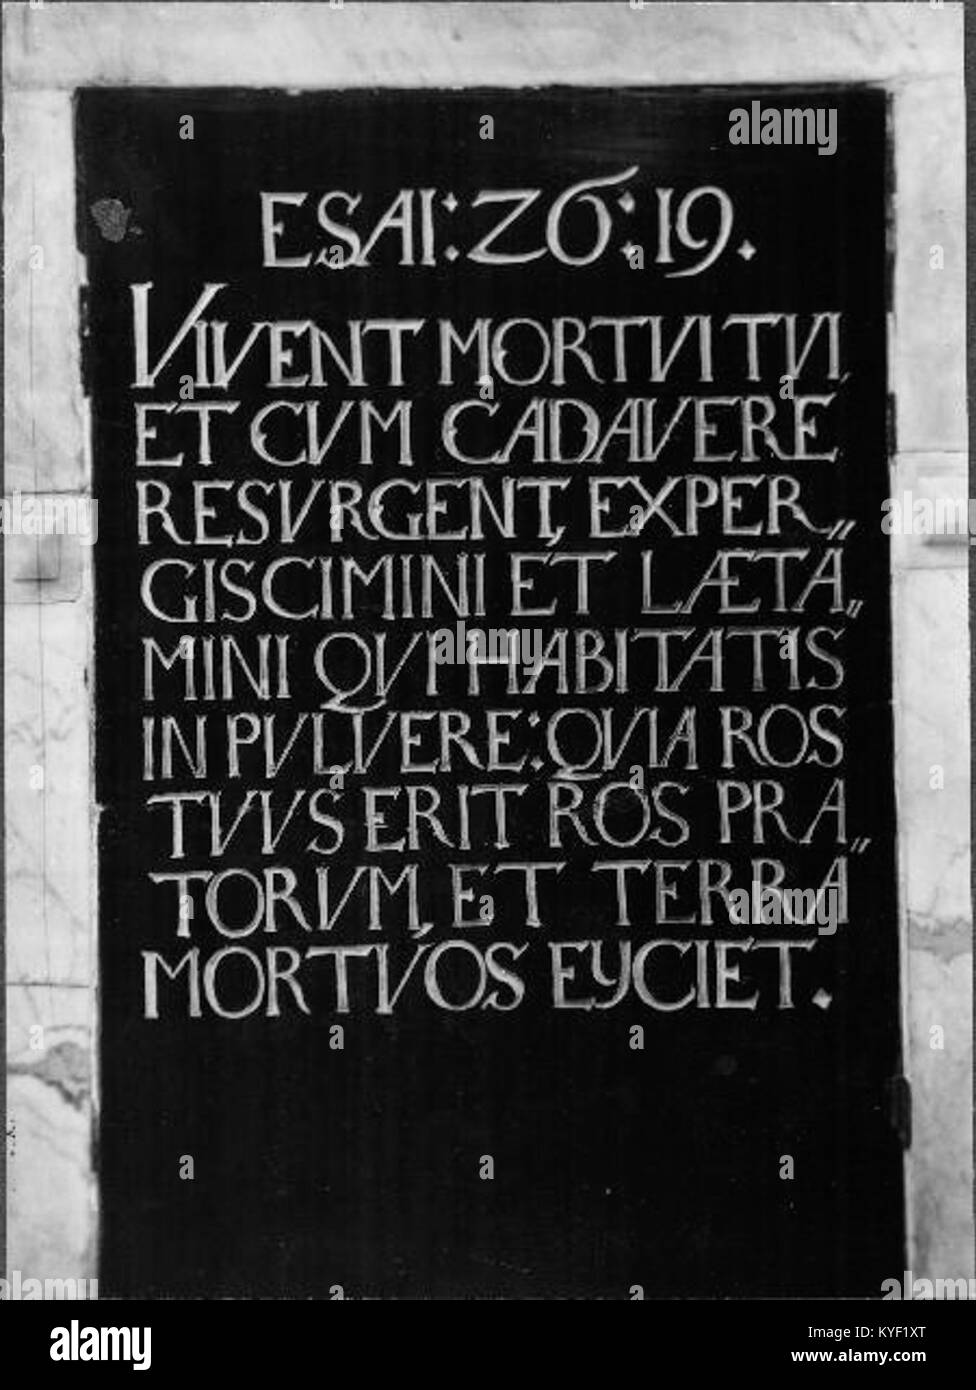 ESAI:26:19.
VIVENT MORTVI TVI,
ET CVM CADAVERE
RESVRGENT, EXPER„
GISCIMINI ET LÆTA„
MINI QVI HABITATIS
IN PVLVERE: QVIA ROS
TVVS ERIT ROS PRA„
TORVM, ET TERRA
MORTVOS EYCIET.
alamy
Image ID: KYF1XT
www.alamy.com